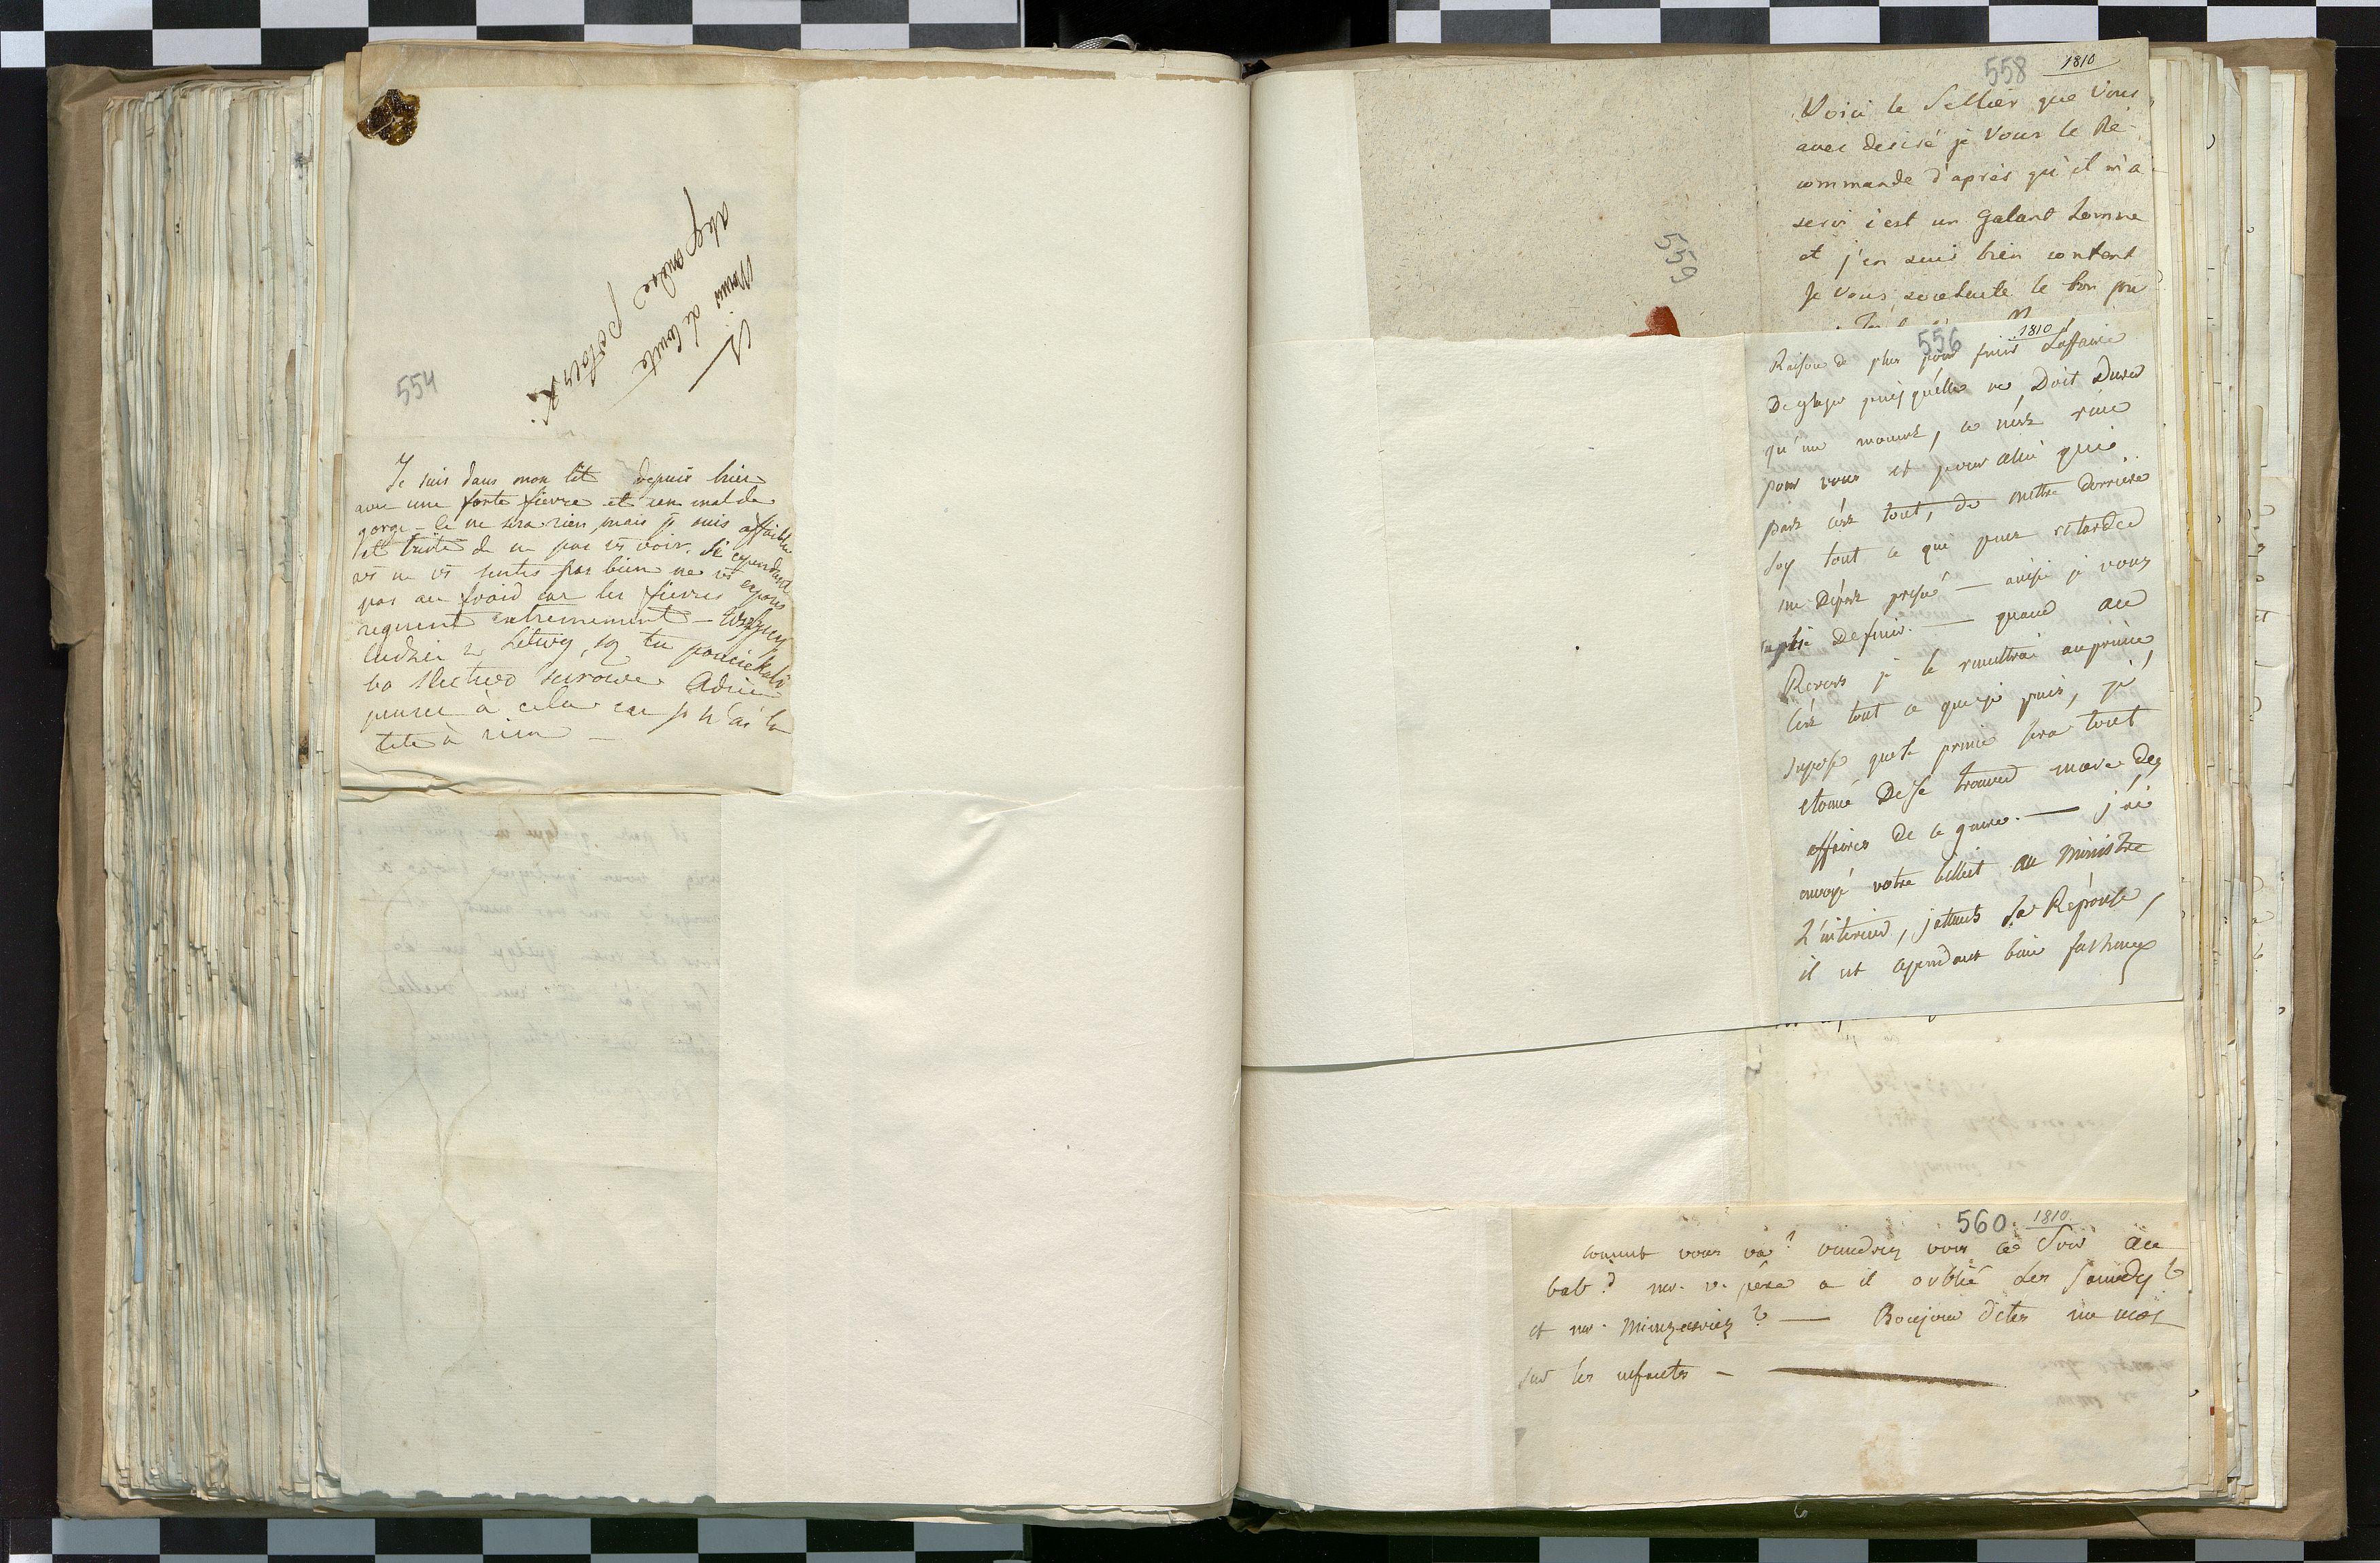 A
Monsieur le Comte
Alexandre Potocki
554
Je suis dans mon lit depuis hier
avec une forte fievre et un mal de
gorge – Ce ne sera rien, mais je suis affaiblie
et triste de ne pas vs voir. Si cependant
vs ne vs sentes pas bien ne vs exposes
pas au froid car les fievres
regnent extremement –
ludzie z Litwy, są tu
bo Adieu
penser à cela car je n'ai la
tete à rien –
558 1810
Voici le Sellier que Vous
avez desiré je Vous le Re-
commande d'après qu'il m'a
servi c'est un Galant homme
et j'en suis bien content
Je vous souhaite le bon jour
559
556 1810
Raison de plus pour finir l'affaire
puisqu'elle ne Doit Durer
qu'un moment, ce n'est rien
pour vous et pour celui qui
part c'est tout, de mettre derriere
soy tout ce qui peut retarder
un Départ pressé – ainsi je vous
suplie De finir. – quand au
Revers je le remettrai au prince,
c'est tout ce que je puis, je
supose que le prince sera tout
etonné De se trouver des
affaires de ce genre. – j'ai
envoyé votre billet au Ministre
L'interieur, j'attends sa Reponse,
il est cependant bien facheux
560 1810
coment vous va? viendrez vous ce Soir au
bal? mr. v. père a il oublié les Samedy?
et mr. ? – Bonjour dites un mot
sur les –